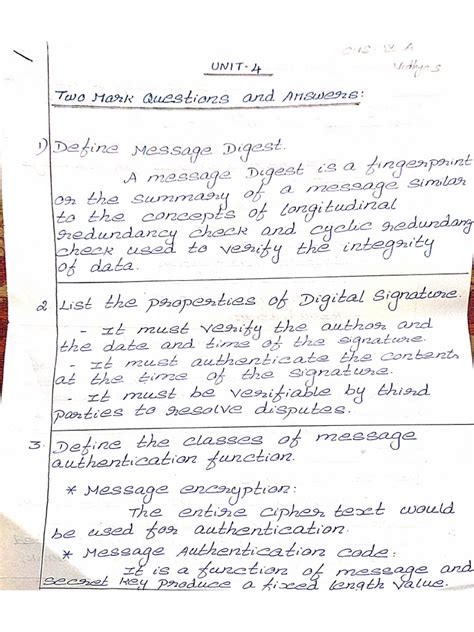 UNIT-4
Vidhya S
Two Mark Questions and Answers:
1) Define Message Digest.
A message Digest is a fingerprint
or the summary of a message similar
to the concepts of longitudinal
redundancy check and cyclic redundanc
check used to verify the integrity
of data.
2 List the properties of Digital Signature.
- It must verify the author and
the date and time of the signature.
- It must authenticate the contents
at the time of the signature.
- It must be verifiable by third
parties to resolve disputes.
3. Define the classes of message
authentication function.
* Message encryption:
The entire cipher text would
be used for authentication.
* Message Authentication code:
It is a function of message and
secret key produce a fixed length value.